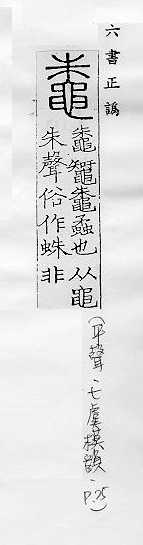 六書正譌
鼄
鼄鼅鼄蟊也从黽
朱聲俗作蛛非
(平聲、七虞模韻、P.25)